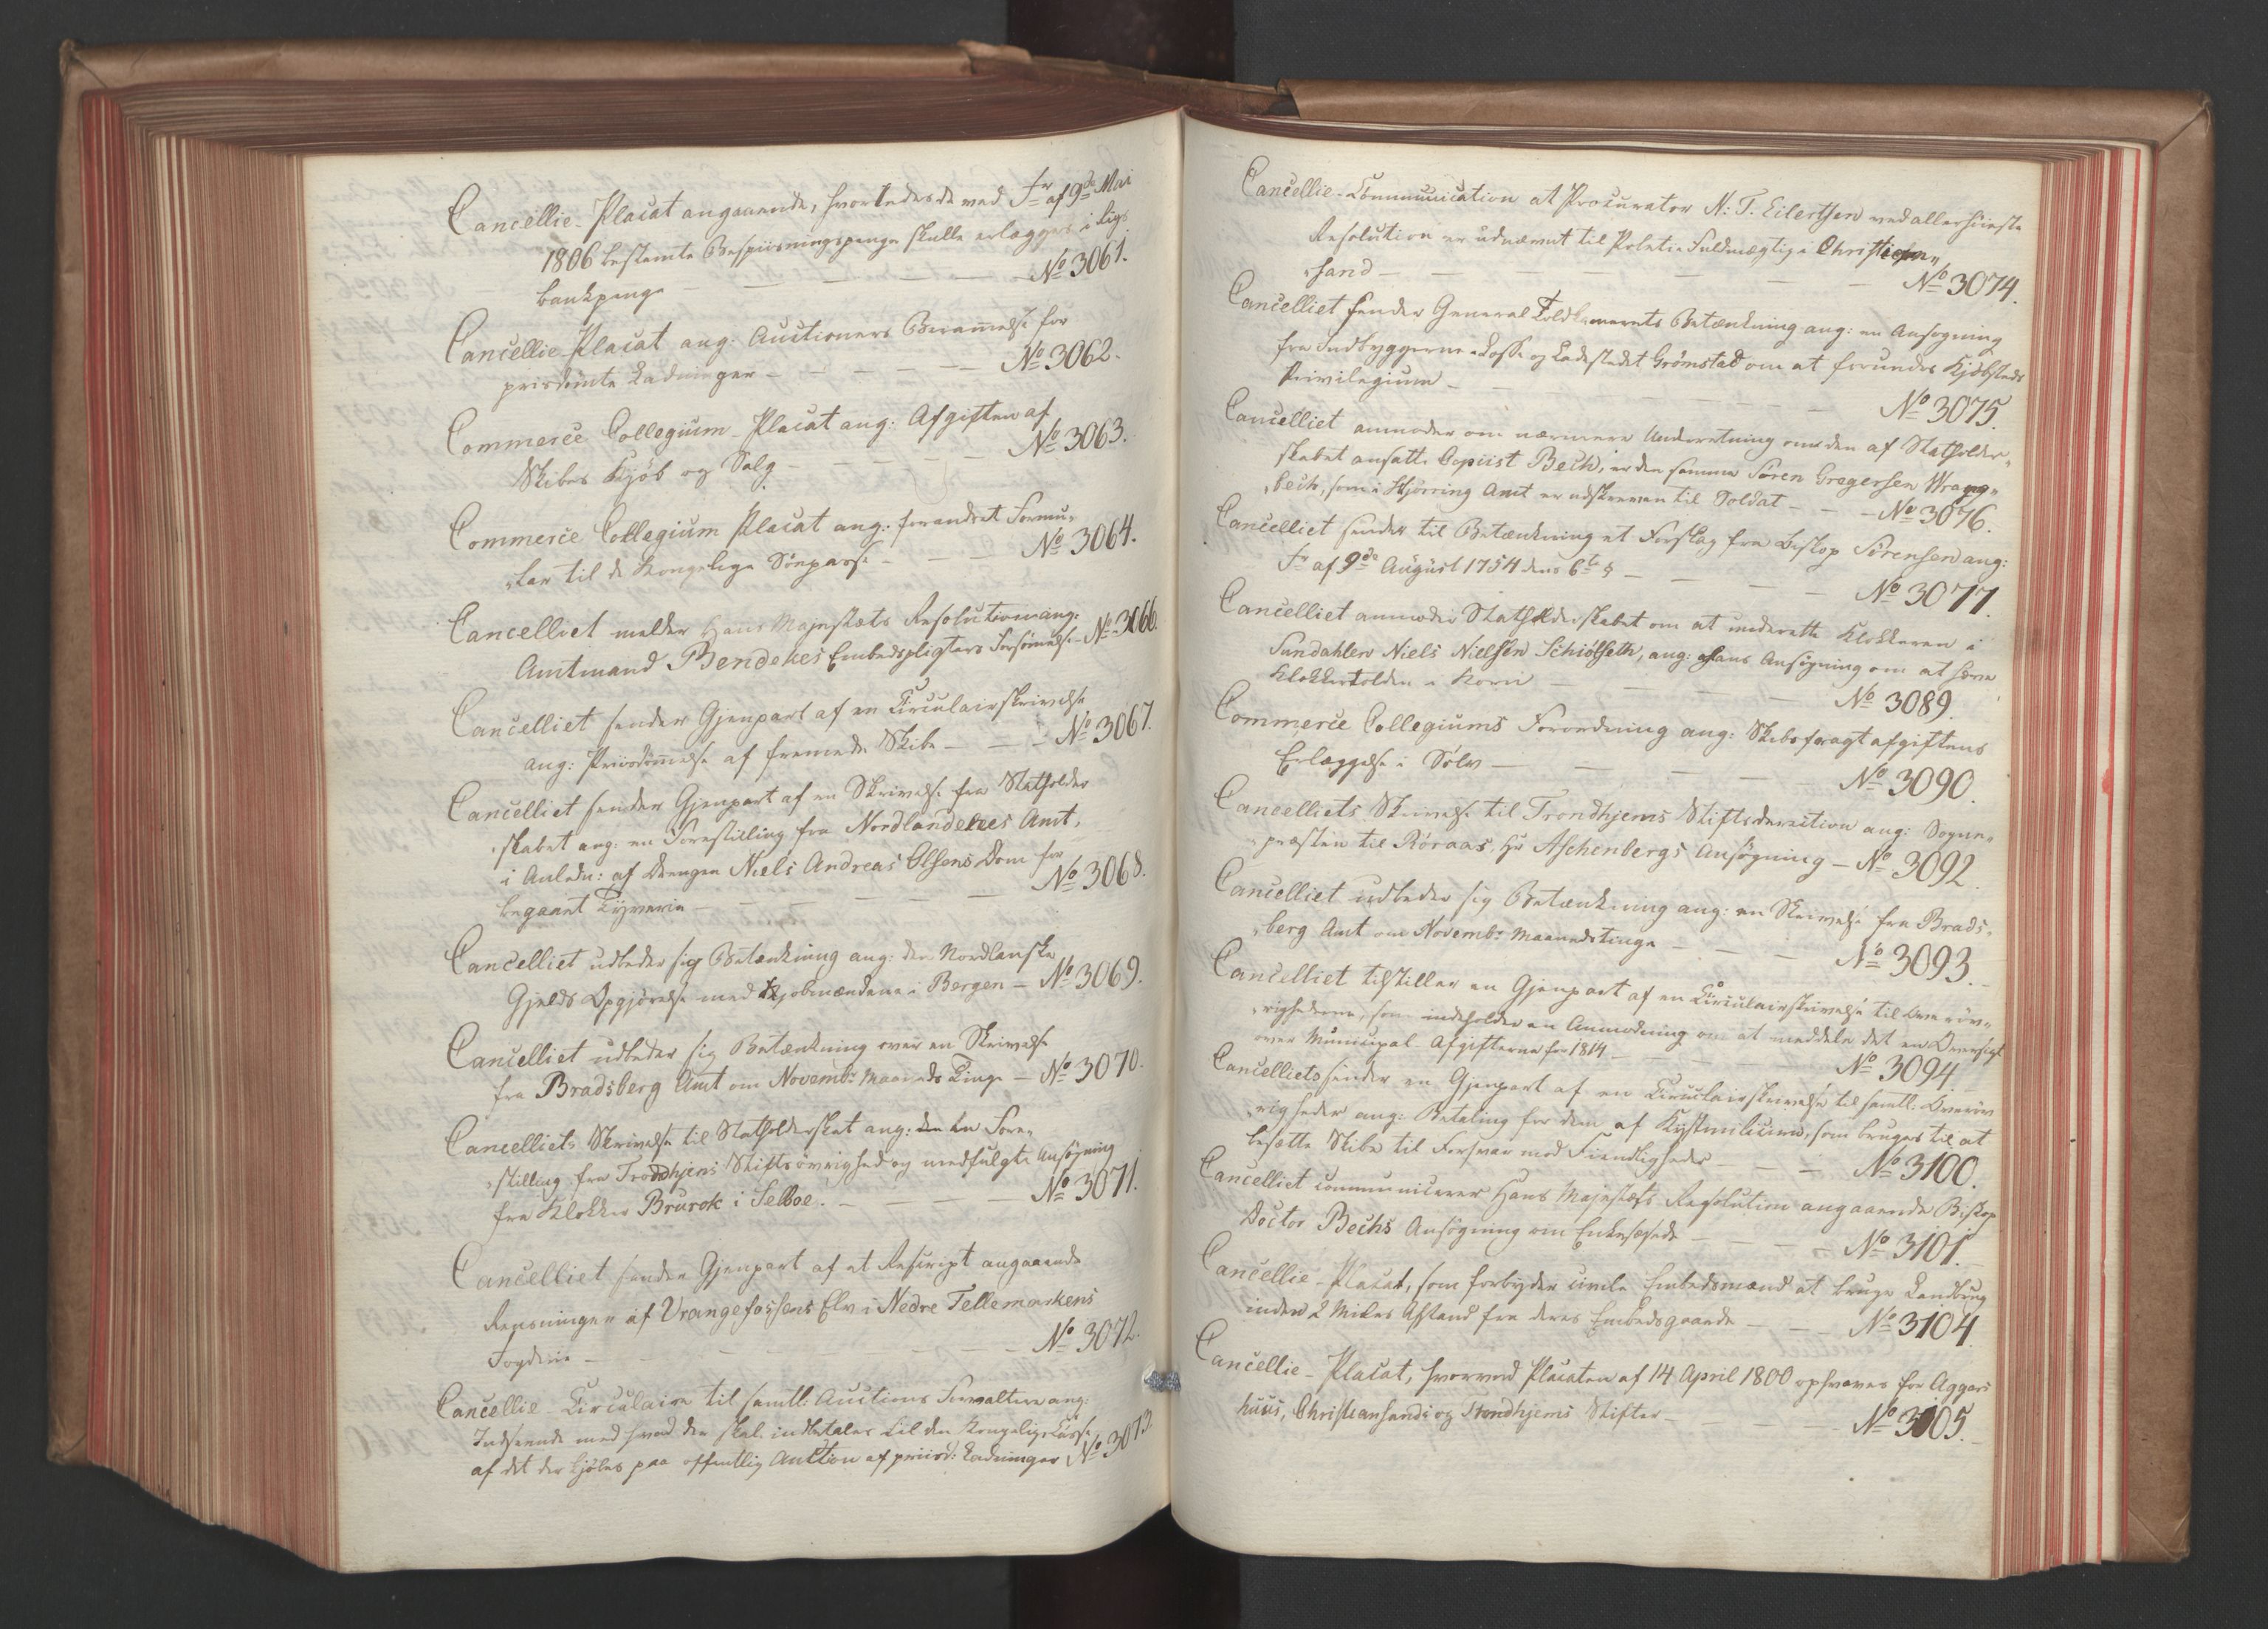 Cancellie-Placat angaaende, hvorledes de ved Fr af 9de Mai
1806 bestemte Bespiisningspenge skulle erlægges i Rigs
bankpenge - - - No 3061.
Cancellie Placat ang. Auctioners Berammelse for
prisdømte Ladninger - - - - - No 3062.
Commerce Collegium-Placat ang: Afgiften af
Skibes Kjöb og Salg - - - - - No 3063.
Commerce Collegium Placat ang: forandret Formu„
„lar til de Kongelige Söepasse - - - No 3064.
Cancelliet melder Hans Majestæts Resolution ang:
Amtmand Bendekes Embedspligters Forsømmelse - No 3066.
Cancelliet sender Gjenpart af en Circulairskrivelse
ang: Priisdömmelse af fremmede Skibe - - - No 3067.
Cancelliet sender Gjenpart af en Skrivelse fra Statholder
„skabet ang: en Forestilling fra Nordlandenes Amt,
i Anledn: af Drengen Niels Andreas Olsens Dom for
begaaet Tyverie - - - - - No 3068.
Cancelliet udbeder sig Betænkning ang: den Nordlanske
Gjelds Opgjörelse med Kjøbmændene i Bergen - No 3069.
Cancelliet udbeder sig Betænkning over en Skrivelse
fra Bradsberg Amt om Novembr Maaneds Tinge - No 3070.
Cancelliets Skrivelse til Statholderskabet ang: en Fore„
„stilling fra Trondhjems Stiftsövrighed og medfulgte Ansögning
fra Klokker Brurok i Selboe. - - - No 3071.
Cancelliet sender Gjenpart af et Rescript angaaende
Rensningen af Vrangefossens Elv i Nedre Tellemarkens
Fogderie - - - - - No 3072.
Cancellie-Circulaire til samtl: Auctions Forvaltere ang:
Indseende med hvad der skal indbetales til den Kongelige Casse
af det der kjöbes paa offentlig Auction af priisd: Ladninger No 3073.
Cancellie-Communication at Procurator N: T. Eilertsen ved allerhöieste
Resolution er udnævnt til Politie Fuldmægtig i Christian„
„sand - - - - - No 3074.
Cancelliet sender General Toldkamerets Betænkning ang: en Ansøgning
fra Indbyggerne i Losse og Ladestedet Grömstad om at forundes Kjöbsteds
Privilegium - - - - - No 3075.
Cancelliet anmoder om nærmere Underretning om den af Statholder„
skabet ansatte Copiist Bech, er den samme Sören Gregersen Wrang„
„bech, som i Hjörring Amt er udskreven til Soldat - - - No 3076.
Cancelliet sender til Betænkning et Forslag fra Biskop Sörensen ang:
Fr af 9de August 1754 dens 6te § - - - No 3077.
Cancelliet anmoder Statholderskabet om at underrette Klokkeren i
Sundahlen Niels Nielsen Schiölseth, ang: hans Ansögning om at hæve
Klokkertolden i Korn - - - - No 3089.
Commerce Collegiums Forordning ang: Skibsfragtafgiftens
Erlæggelse i Sölv - - - - - No 3090.
Cancelliets Skrivelse til Trondhjems Stiftsdirection ang: Sogne„
„præsten til Röraas, Hr Aschenbergs Ansögning - No 3092.
Cancelliet udbeder sig Betænkning ang: en Skrivelse fra Brads„
„berg Amt om Novembr Maanedstinge - - - No 3093.
Cancelliet tilstiller en Gjenpart af en Circulairskrivelse til Overöv„
„righederne, som indeholder en Anmodning om at meddele det en Oversigt
over Municipal-Afgifterne for 1814 - - - No 3094.
Cancelliets sender en Gjenpart af en Circulairskrivelse til samtl: Overöv
„righeder ang: Betaling for dem af Kystmilicien, som bruges til at
besætte Skibe til Forsvar mod Fiendtligheder - - - No 3100.
Cancelliet communicerer Hans Majestæts Resolution angaaende Biskop
Doctor Bechs Ansögning om Enkesæde - - - - No 3101.
Cancellie-Placat, som forbyder civile Embedsmænd at bruge Landbrug
inden 2 Miles Afstand fra deres Embedsgaarde - - - No 3104.
Cancellie-Placat, hvorved Placaten af 14 April 1800 ophæves for Aggers
huus, Christiansands og Trondhjems Stifter - - - No 3105.